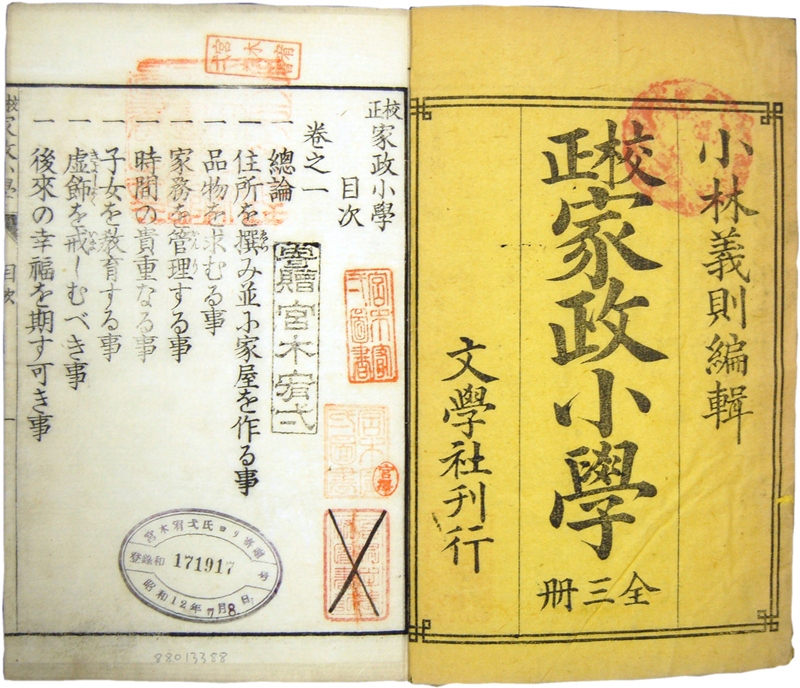 小林義則編輯
校正家政小學
全三冊
文學社刊行
校正家政小學
目次
卷之一
一總論
一住所を撰み並小家屋を作る事
一品物を求むる事
一家務を管理する事
一時間の貴重なる事
一子女を教育する事
一虚飾を戒しむべき事
一後來の幸福を期す可き事
寄贈宮木宥弌
登錄和
171917
號
昭和12年7月8日
88013388